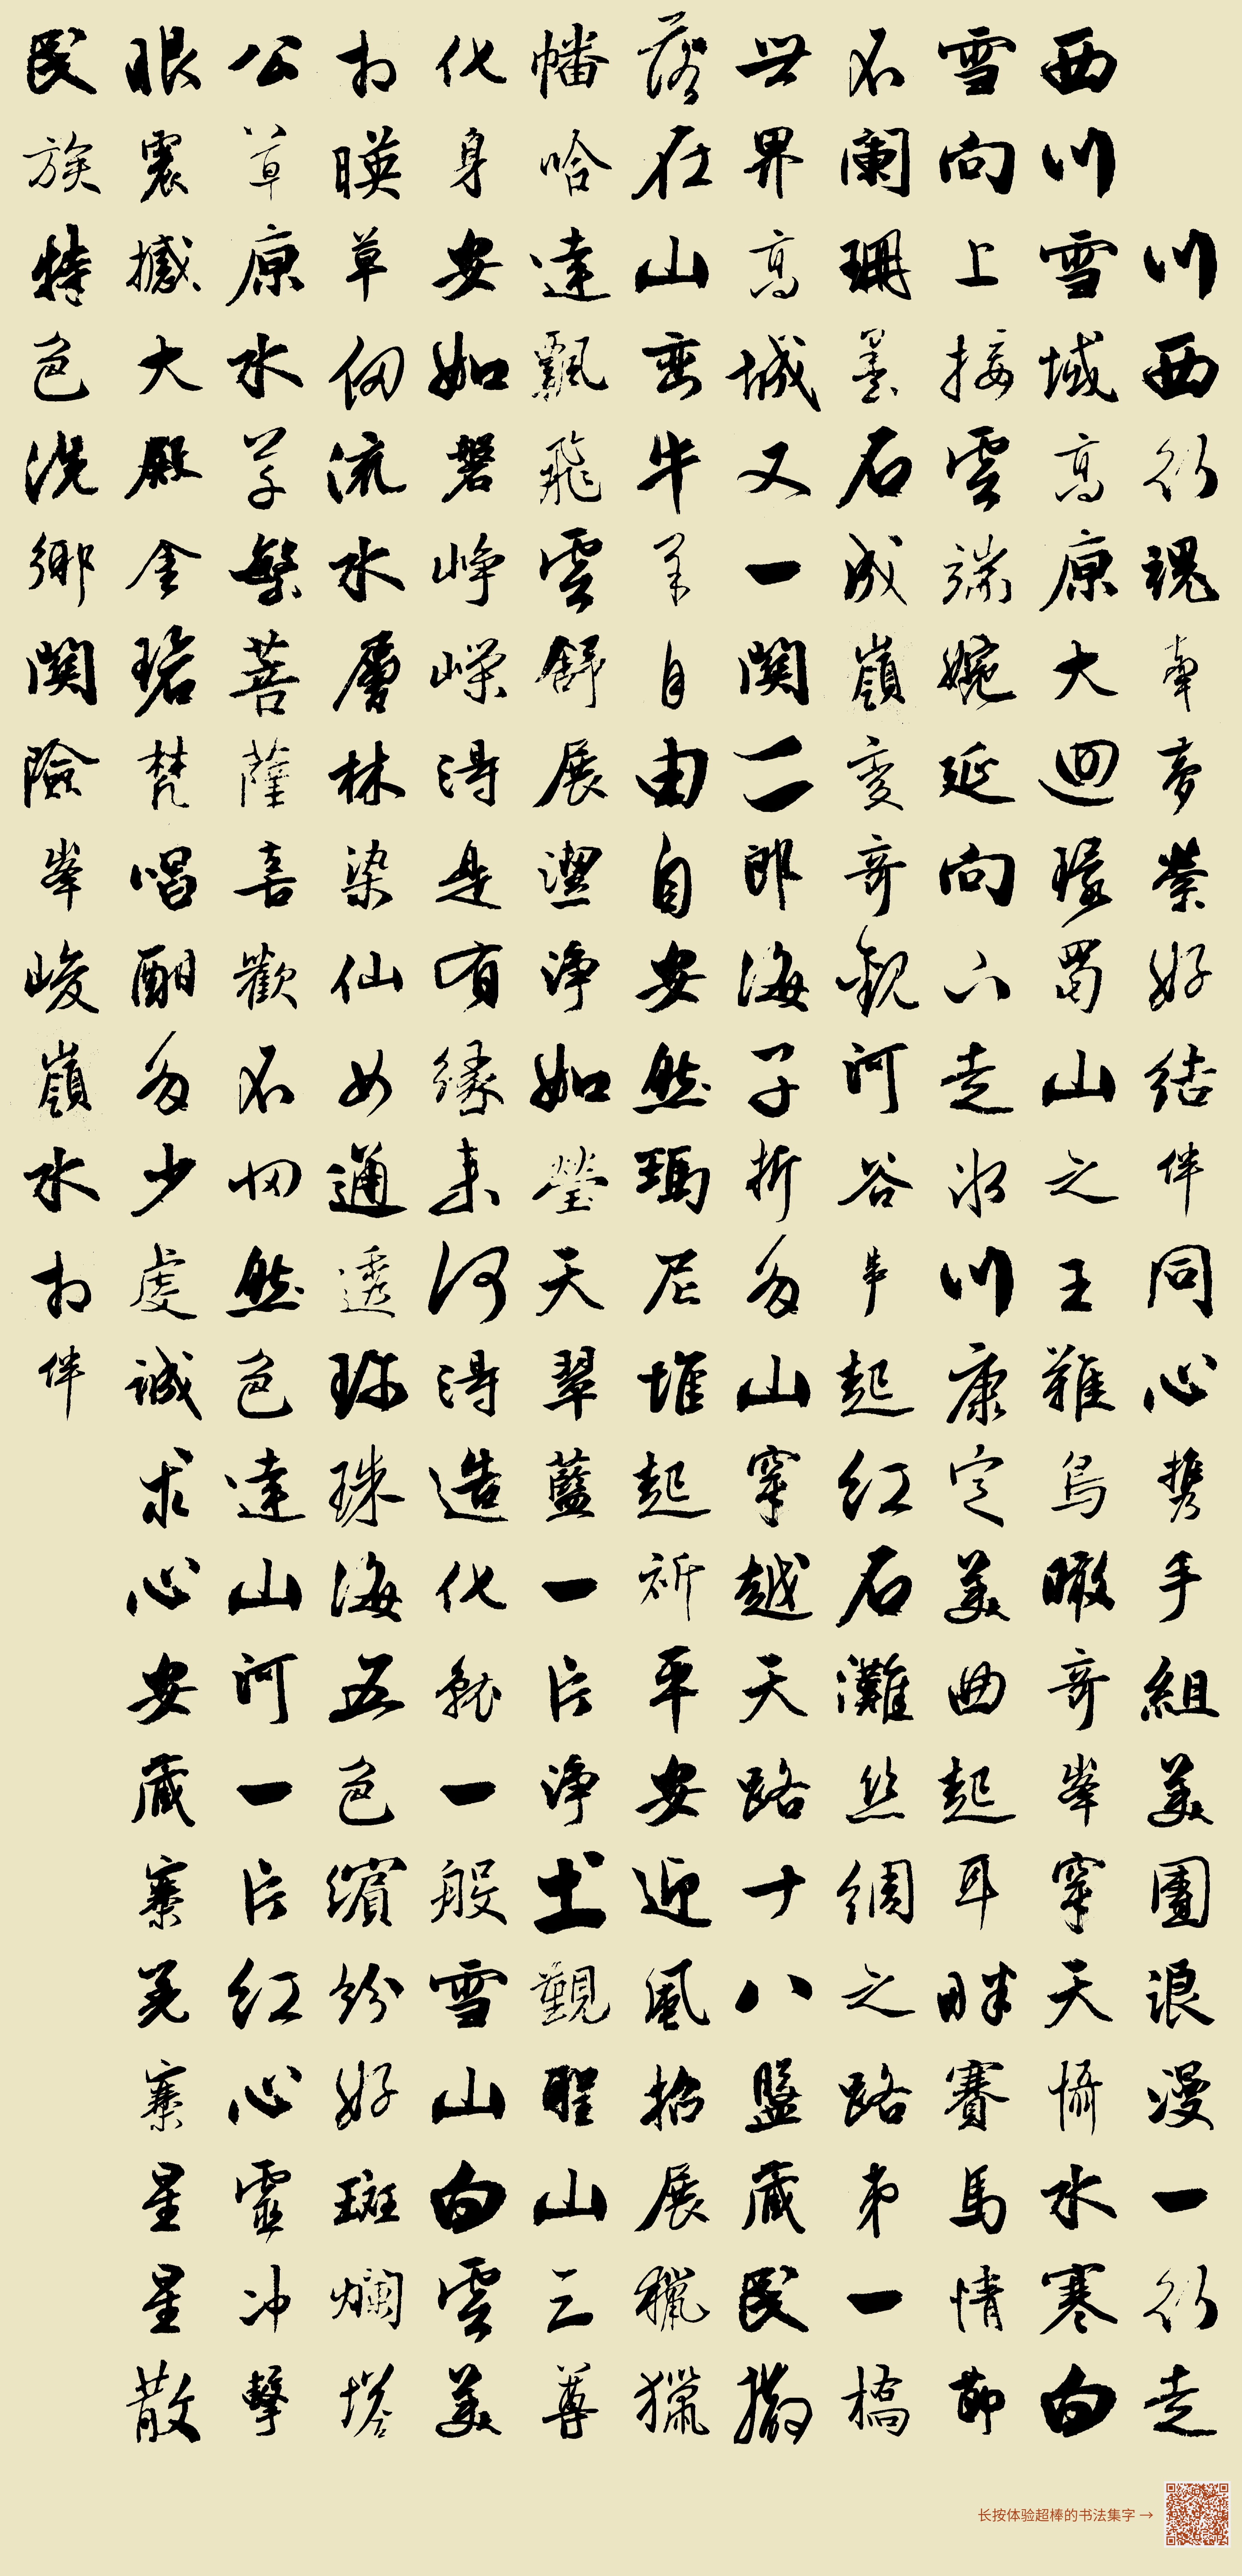 川西行魂牽夢縈好結伴同心攜手組美團浪漫一行走
西川雪域高原大迴環蜀山之王難鳥瞰奇峯穿天懾水寒白
雪向上接雲端婉延向下走冰川康定美曲起耳畔賽馬情節
不闌珊墨石成嶺變奇觀河谷串起紅石灘絲綢之路第一橋
世界高城又一關二郎海子折多山穿越天路十八盤藏民撒
落在山巒牛羊自由自安然瑪尼堆起祈平安迎風招展獵獵
幡哈達飄飛雲舒展潔淨如瑩天翠藍一片淨土觀聖山三尊
化身安如磐崢嶸得是有緣來何得造化就一般雪山白雲美
相暎草甸流水層林染仙女通透珍珠海五色繽紛好斑斕塔
公草原水草繁菩薩喜歡不然色達山河一片紅心靈冲擊
眼震撼大殿金碧梵唱酣多少虔誠求心安藏寨羌寨星星散
民族特色洗鄉關險峯峻嶺水相伴
长按体验超棒的书法集字 →